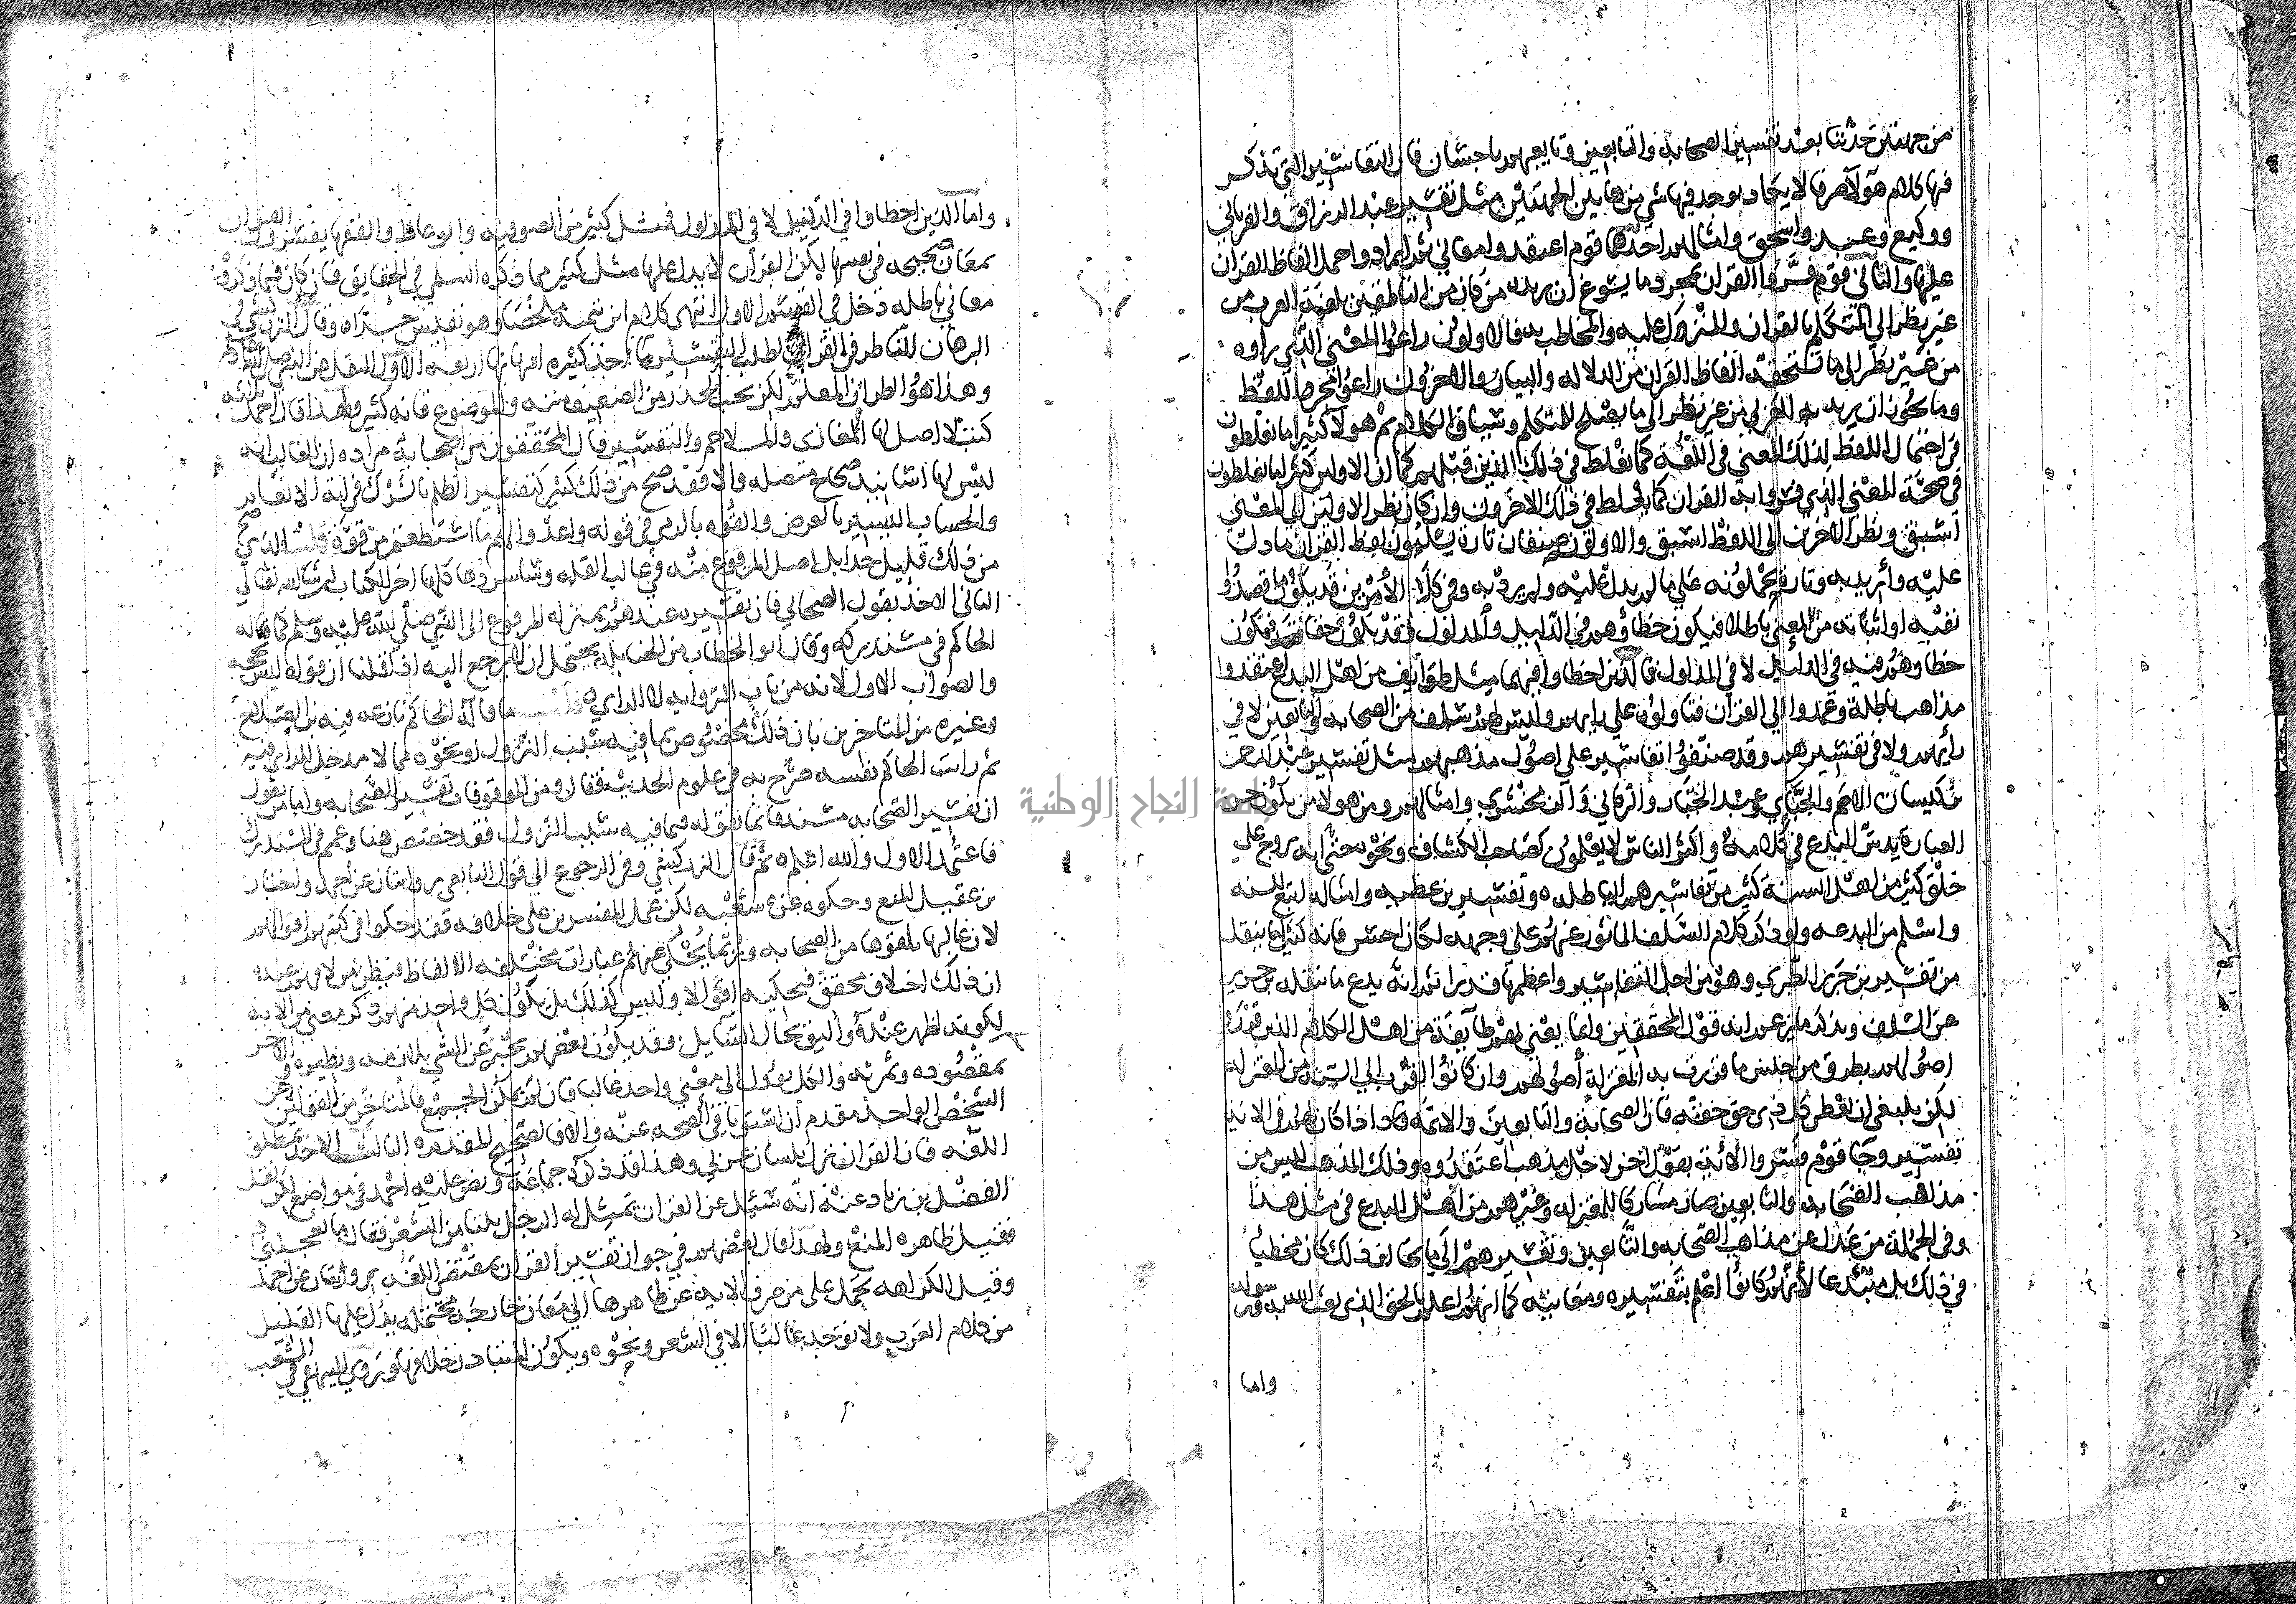 من جهتين حدثتا بعد تفسير الصحابة والتابعين وتابعيهم باحسان فان التفاسير التي تذكر
فيها كلام هولا صرفا لا يكاد يوجد فيها شي من هاتين الجهتين مثل تفسير عبد الرزاق والفريابي
ووكيع وعبد واسحق وامثالهم احدهما قوم اعتقدوا معاني ثم ارادوا حمل الفاظ القران
عليها والثاني قوم فسروا القران بمجرد ما يسوغ ان يريده من كان من الناطقين بلغة العرب من
غير نظر الي المتكلم بالقران والمنزل عليه والمخاطب به فالاولون راعوا المعني الذي راوه
من غير نظر الى ما تستحقه الفاظ القران من الدلاله والبيان والاخرون راعوا مجرد اللفظ
وما يجوز ان يريد به العربي من غير نظر الى ما يصلح للمتكلم وسياق الكلام ثم هولا كثيرا ما يغلطون
في احتمال اللفظ لذلك المعني في اللغة كما يغلط في ذلك الذين قبلهم كما ان الاولين كثيرا ما يغلطون
في صحة المعني الذي فسروا به القران كما يغلط في ذلك الاخرون وان كان نظر الاولين الي المعني
اسبق ونظر الاخرين الى اللفظ اسبق والاولون صنفان تارة يسلبون لفظ القران ما دل
عليه واريد به وتارة يحملونه على ما لم يدل عليه ولم يرد به وفي كلا الامرين قد يكون ما قصدوا
نفيه او اثباته من المعني باطلا فيكون خطاؤهم في الدليل والمدلول وقد يكون حقا فيكون
خطاوهم فيه في الدليل لا في المدلول فالذين اخطاوا فيهما مثل طوايف من اهل البدع اعتقدوا
مذاهب باطلة وعمدوا الي القران فتاولوه على رايهم وليس لهم سلف من الصحابة والتابعين لا في
رايهم ولا في تفسيرهم وقد صنفوا تفاسير على اصول مذهبهم مثل تفسير عبد الرحمن
بن كيسان الاصم والجبائي وعبد الجبار والرماني والزمخشري وامثالهم ومن هولا من يكون حسن
العبارة يدس البدع في كلامه واكثر الناس لا يعلمون كصاحب الكشاف ونحوه حتى انه يروج على
خلق كثير من اهل السنة كثير من تفاسيرهم الباطله وتفسير بن عطيه وامثاله اتبع للسنه
واسلم من البدعه ولو ذكر كلام السلف الماثور عنهم على وجهه لكان احسن فانه كثيرا ما ينقل
من تفسير بن جرير الطبري وهو من اجل التفاسير واعظمها قدرا ثم انه يدع ما ينقله بن جرير
عن السلف ويذكر ما يزعم انه قول المحققين وانما يعني بهم طايفة من اهل الكلام الذين قرروا
اصولهم بطرق من جنس ما قررت به المعتزلة اصولهم وان كانوا اقرب الي السنة من المعتزله
لكن ينبغي ان يعطى كل ذي حق حقه فان الصحابة والتابعين والائمة اذا كان لهم في الاية
تفسير وجا قوم فسروا الاية بقول اخر لاجل مذهب اعتقدوه وذلك المذهب ليس من
مذاهب الصحابه والتابعين صار مشاركا للمعتزله وغيرهم من اهل البدع في مثل هذا
وفي الجملة من عدل عن مذاهب الصحابه والتابعين وتفسيرهم الي ما يخالف ذلك كان مخطيا
في ذلك بل مبتدعا لانهم كانوا اعلم بتفسيره ومعانيه كما انهم اعلم بالحق الذي بعث الله به رسوله
واما
واما الذين اخطاوا في الدليل لا في المدلول فمثل كثير من الصوفيه والوعاظ والفقها يفسرون القران
بمعان صحيحه في نفسها لكن القران لا يدل عليها مثل كثير مما ذكره السلمي في الحقايق فان كان فيما ذكروه
معاني باطله دخل في القسم الاول انتهى كلام ابن تيميه ملخصا وهو نفيس جدا وقال الزركشي في
البرهان للناظر في القران لطلب التفسير ماخذ كثيره امهاتها اربعه الاول النقل عن النبي صلى الله عليه وسلم
وهذا هو الطراز المعلم لكن يجب الحذر من الضعيف منه والموضوع فانه كثير ولهذا قال احمد ثلاثه
كتب لا اصل لها المغازى والملاحم والتفسير قال المحققون من اصحابه مراده ان الغالب انه
ليس لها اسانيد صحاح متصله والا فقد صح من ذلك كثير كتفسير الظلم بالشرك في اية الانعام
والحساب اليسير بالعرض والقوه بالرمي في قوله واعدوا لهم ما استطعتم من قوة قلت الذي صح
من ذلك قليل جدا بل اصل المرفوع منه في غايه القله وساسردها كلها اخر الكتاب ان شا الله تعالي
الثاني الاخذ بقول الصحابي فان تفسيره عندهم بمنزله المرفوع الى النبي صلي الله عليه وسلم كما قاله
الحاكم في مستدركه وقال ابو الخطاب من الحنابلة يحتمل ان لا يرجع اليه اذا قلنا ان قوله ليس بحجه
والصواب الاول لانه من باب الروايه لا الراي قلت ما قاله الحاكم نازعه فيه بن الصلاح
وغيره من المتاخرين بان ذلك مخصوص بما فيه سبب النزول او نحوه مما لا مدخل للراي فيه
ثم رايت الحاكم نفسه صرح به في علوم الحديث فقال ومن الموقوفات تفسير الصحابه واما من يقول
ان تفسير الصحابه مسند فانما يقوله فيما فيه سبب النزول فقد خصص هنا وعمم في المستدرك
فاعتمد الاول والله اعلم ثم قال الزركشي وفي الرجوع الى قول التابعي روايتان عن احمد واختار
بن عقيل المنع وحكوه عن شعبه لكن عمل المفسرين على خلافه فقد حكوا في كتبهم اقوالهم
لان غالبها تلقوها من الصحابه وربما يحكى عنهم عبارات مختلفه الالفاظ فيظن من لا فهم عنده
ان ذلك اختلاف محقق فيحكيه اقوالا وليس كذلك بل يكون كل واحد منهم ذكر معنى من الايه
لكونه اظهر عنده واليق بحال السايل وقد يكون بعضهم يخبر عن الشي بلازمه ونظيره والاخر
بمقصوده وثمرته والكل يؤول الى معني واحد غالبا فان لم يمكن الجمع فالمتاخر من القولين عن
الشخص الواحد مقدم ان استويا في الصحه عنه والا فالصحيح المقدم الثالث الاخذ بمطلق
اللغه فان القران نزل بلسان عربي وهذا قد ذكره جماعة ونص عليه احمد في مواضع لكن نقل
الفضل بن زياد عنه انه سئيل عن القران يمثل له الرجل ببيت من الشعر فقال ما يعجبني
فقيل ظاهره المنع ولهذا قال بعضهم في جواز تفسير القران بمقتضى اللغه روايتان عن احمد
وقيل الكراهه تحمل على من صرف الايه عن ظاهرها الي معان خارجة محتمله يدل عليها القليل
من كلام العرب ولا توجد غالبا الا في الشعر ونحوه ويكون المتبادر خلافها وروى البيهقي في الشعب
جامعة النجاح الوطنية